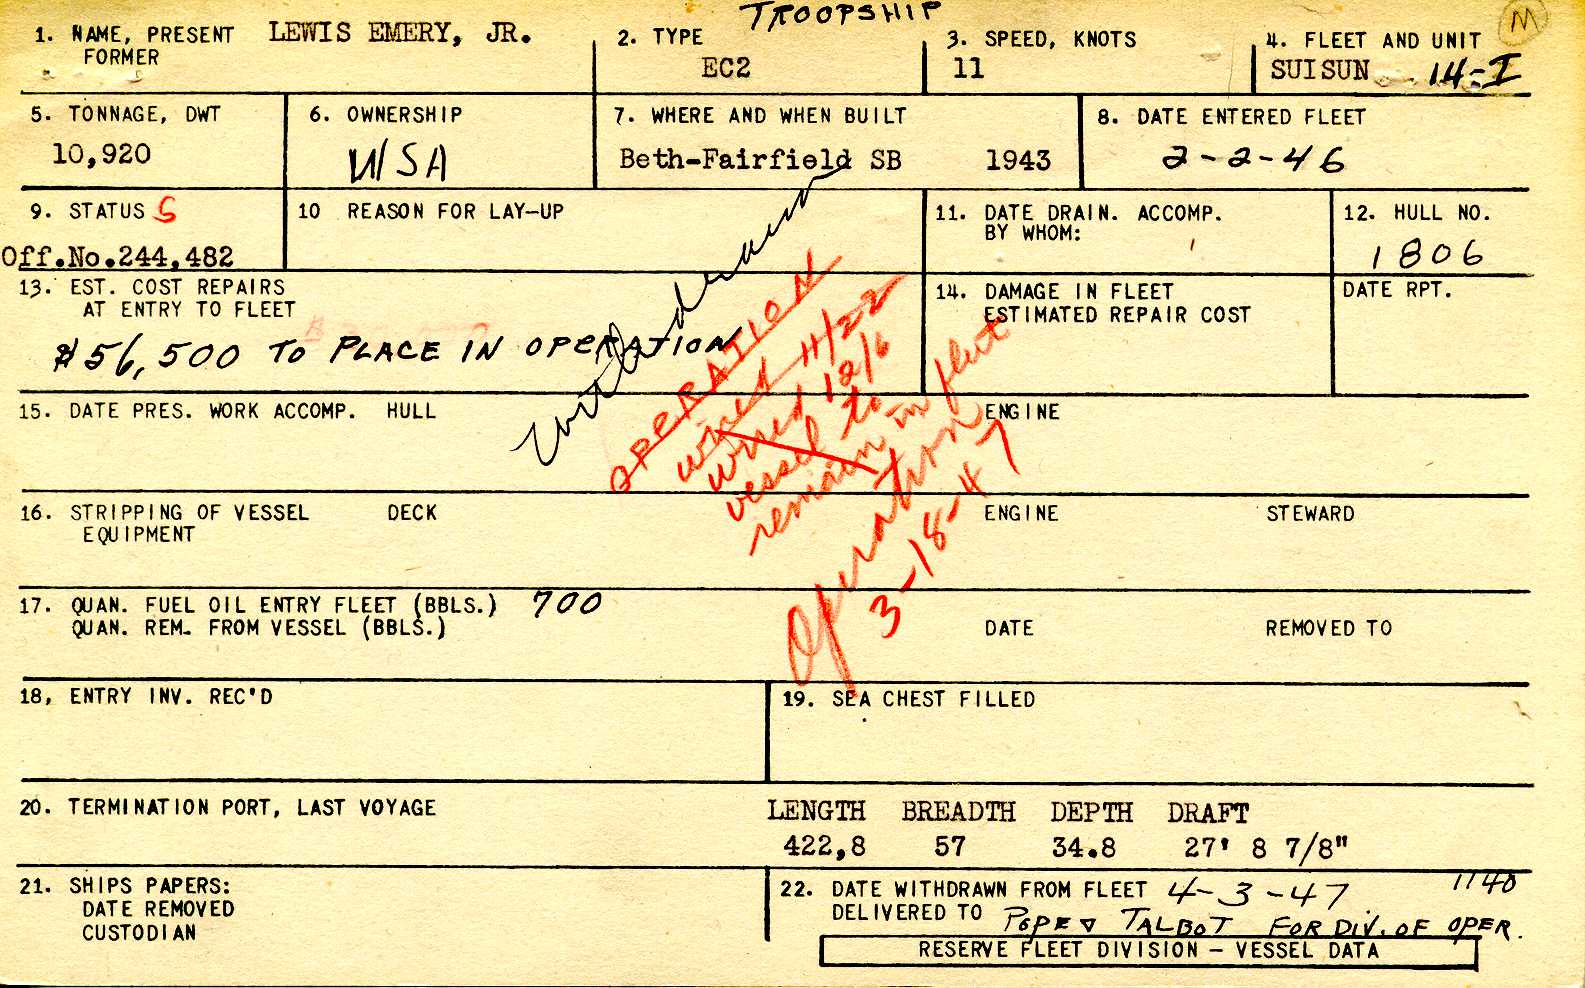 TROOPSHIP
M
1. NAME, PRESENT LEWIS EMERY, JR.
FORMER
2. TYPE
EC2
3. SPEED, KNOTS
11
4. FLEET AND UNIT
SUISUN 14-I
5. TONNAGE, DWT
10,920
6. OWNERSHIP
WSA
7. WHERE AND WHEN BUILT
Beth-Fairfield SB 1943
8. DATE ENTERED FLEET
2-2-46
9. STATUS S
Off.No.244,482
10 REASON FOR LAY-UP
11. DATE DRAIN. ACCOMP.
BY WHOM:
12. HULL NO.
1806
13. EST. COST REPAIRS
AT ENTRY TO FLEET
$56,500 TO PLACE IN OPERATION
14. DAMAGE IN FLEET
ESTIMATED REPAIR COST
DATE RPT.
Withdrawn
OPERATION
wired 11/22
wired 12/6
vessel to
remain in fleet
Operation
3-18-47
15. DATE PRES. WORK ACCOMP. HULL ENGINE
16. STRIPPING OF VESSEL DECK ENGINE STEWARD
EQUIPMENT
17. QUAN. FUEL OIL ENTRY FLEET (BBLS.) 700
QUAN. REM. FROM VESSEL (BBLS.) DATE REMOVED TO
18, ENTRY INV. REC'D
19. SEA CHEST FILLED
20. TERMINATION PORT, LAST VOYAGE
LENGTH BREADTH DEPTH DRAFT
422,8 57 34.8 27' 8 7/8"
21. SHIPS PAPERS:
DATE REMOVED
CUSTODIAN
22. DATE WITHDRAWN FROM FLEET 4-3-47 1140
DELIVERED TO POPE & TALBOT FOR DIV. OF OPER.
RESERVE FLEET DIVISION - VESSEL DATA